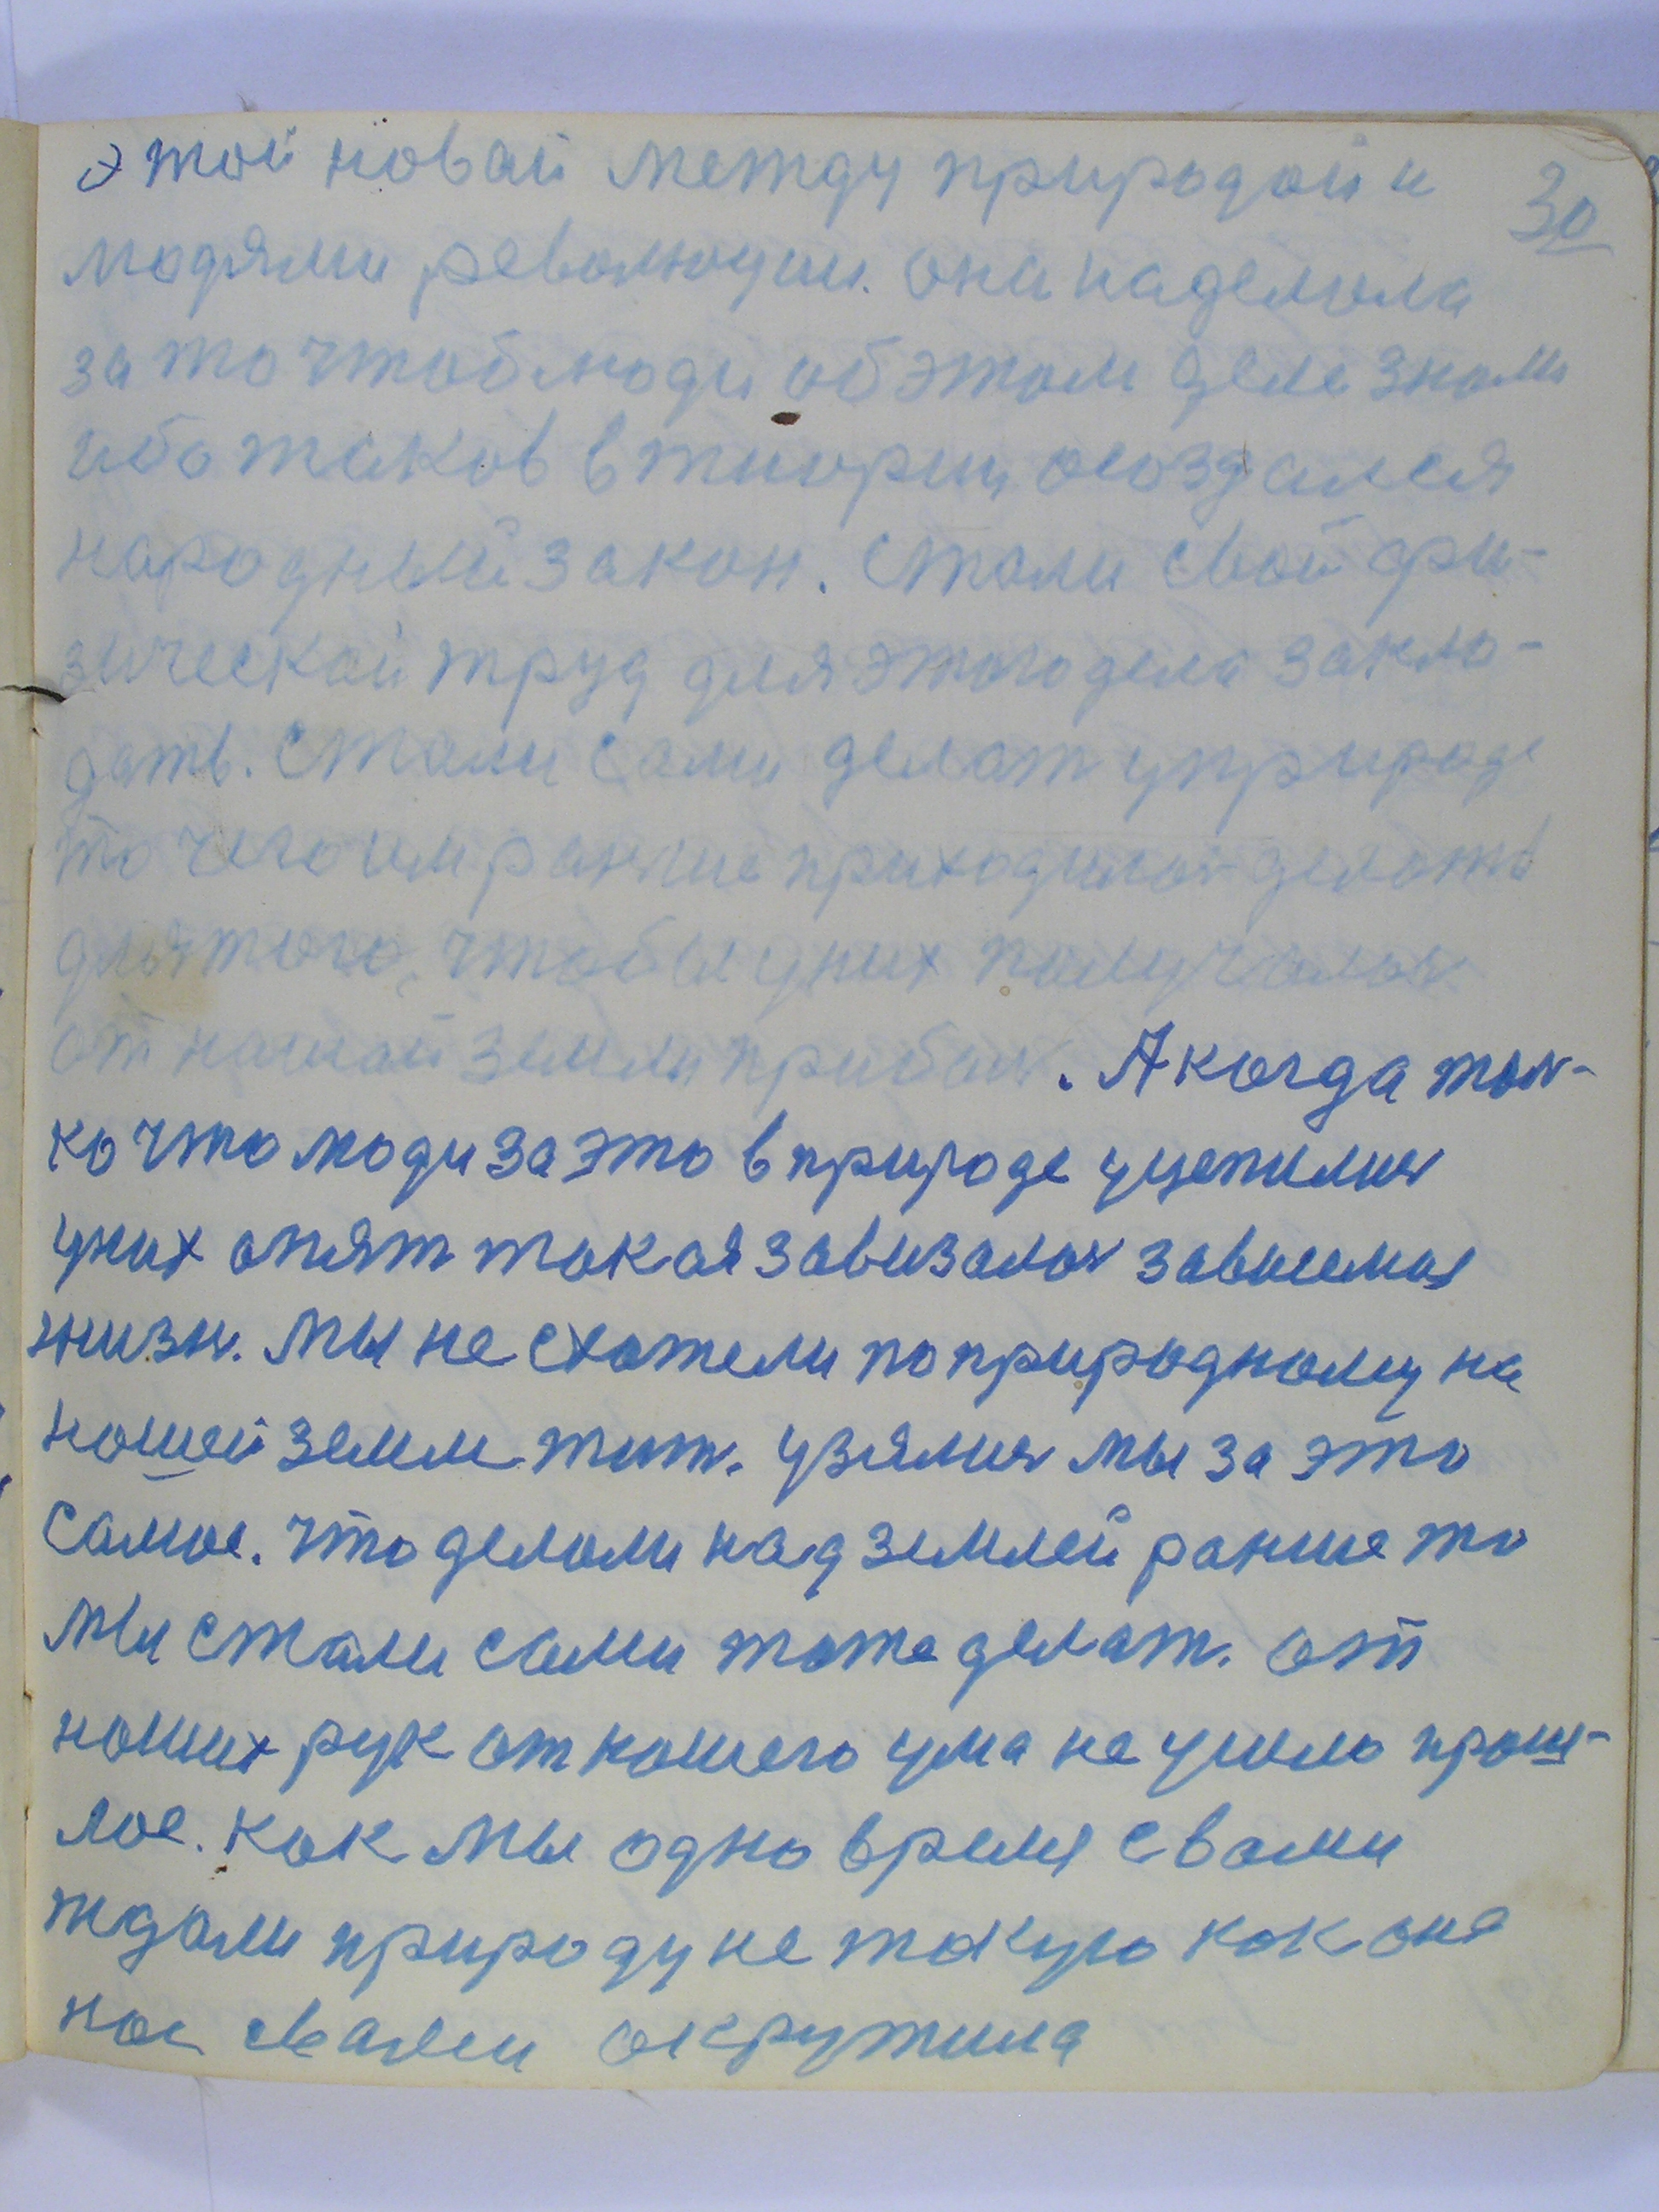 30
этой новай между природой и
людями революции. она наделала
за то чтоб люди об этом деле знали
ибо таков в тиории создался
народный закон. стали свой фи-
зической труд для этого дела закло-
дать. стали сами делат у природе
то чего им раньше приходилось делать
для того, чтобы у них получалось
от нашай земли прибыль. А когда толь-
ко что люди за это в природе уцепились
у них опят такая завизалась зависимая
жизнь. мы не схотели по природному на
нашей земле жит. узялись мы за это
самое. что делали над земле́й раньше то
мы стали сами тоже делат. от
наших рук от нашего ума не ушло прош-
лое. как мы одно время с вами
ждали природу не такую как она
нас с вами окружила